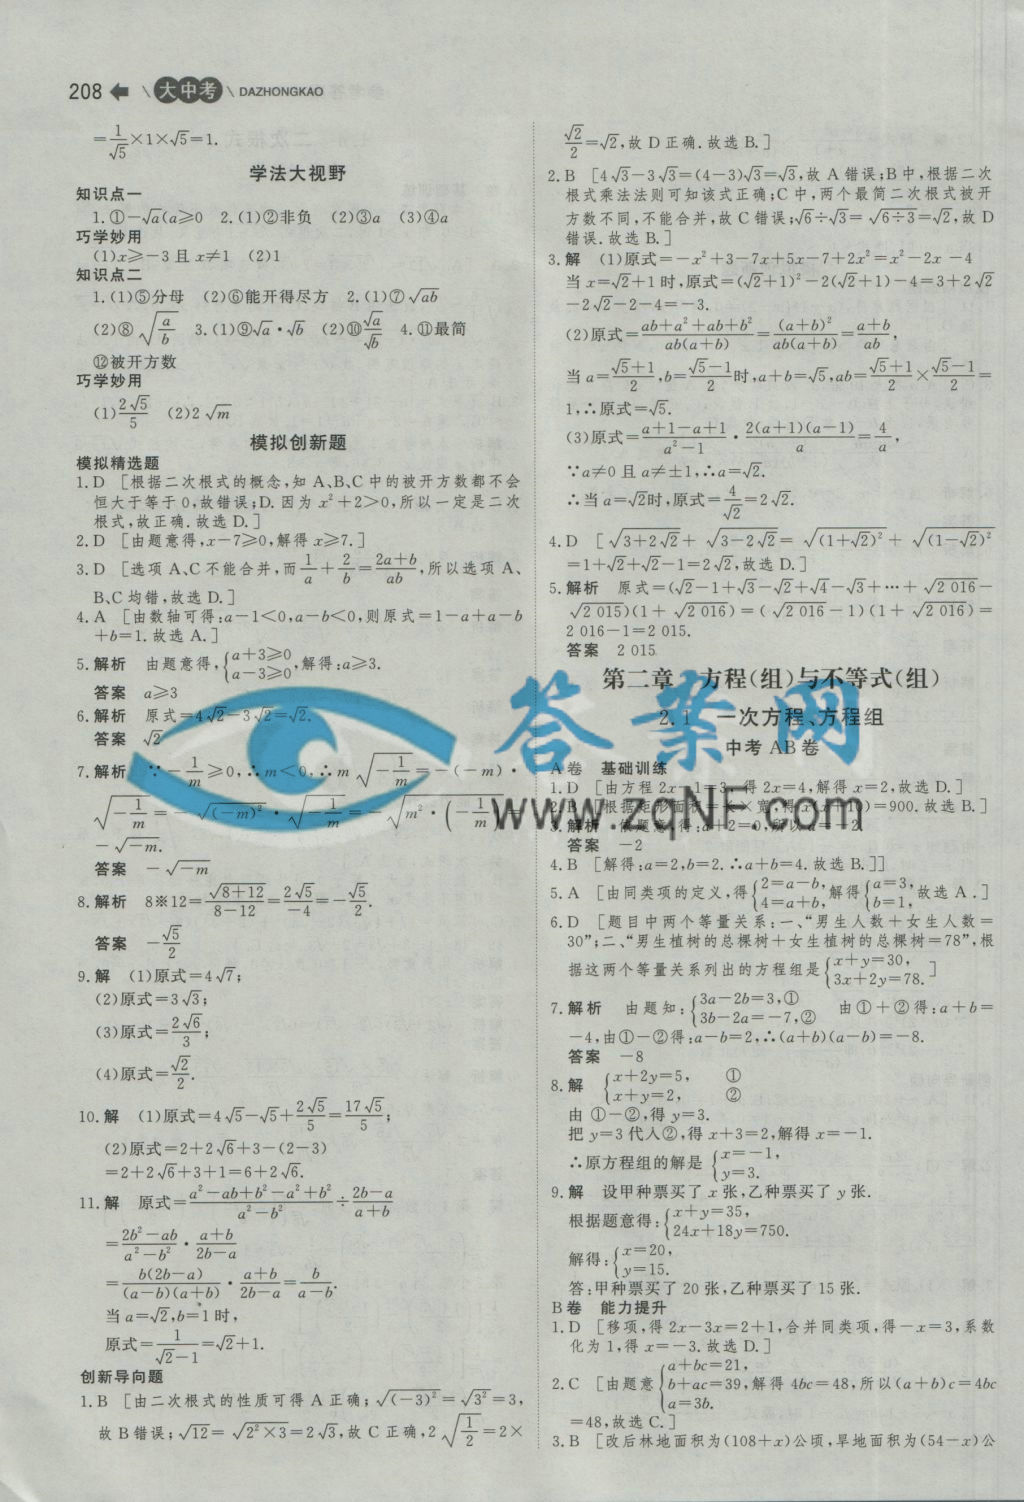 208 大中考 DAZHONGKAO
=1/√5×1×√5=1.
学法大视野
知识点一
1.①-√a(a≥0 2.(1)②非负 (2)③a (3)④a
巧学妙用
(1)x≥-3且x≠1 (2)1
知识点二
1.(1)⑤分母 (2)⑥能开得尽方 2.(1)⑦√ab
(2)⑧√(a/b) 3.(1)⑨√a·√b (2)⑩√a/√b 4.⑪最简
⑫被开方数
巧学妙用
(1)2√5/5 (2)2√m
模拟创新题
模拟精选题
1.D [根据二次根式的概念,知A、B、C中的被开方数都不会
恒大于等于0,故错误;D.因为x²+2>0,所以一定是二次
根式,故正确.故选D.]
2.D [由题意得,x-7≥0,解得x≥7.]
3.D [选项A、C不能合并,而1/a+2/b=(2a+b)/ab,所以选项A、
B、C均错,故选D.]
4.A [由数轴可得:a-1<0,a-b<0,则原式=1-a+a-b
+b=1.故选A.]
5.解析 由题意得,{a+3≥0 a-3≥0,解得:a≥3.
答案 a≥3
6.解析 原式=4√2-3√2=√2.
答案 √2
7.解析 ∵-1/m≥0,∴m<0,∴m√(-1/m)=-(-m)·
√(-1/m)=-√(-m)²·√(-1/m)=-√(m²·(-1/m))=
-√-m.
答案 -√-m
8.解析 8※12=√(8+12)/(8-12)=2√5/-4=-√5/2.
答案 -√5/2
9.解 (1)原式=4√7;
(2)原式=3√3;
(3)原式=2√6/3;
(4)原式=√2/2.
10.解 (1)原式=4√5-√5+2√5/5=17√5/5;
(2)原式=2+2√6+3-(2-3)
=2+2√6+3+1=6+2√6.
11.解 原式=(a²-ab+b²-a²+b²)/(a²-b²)÷(2b-a)/(a+b)
=(2b²-ab)/(a²-b²)·(a+b)/(2b-a)
=b(2b-a)/(a-b)(a+b)·(a+b)/(2b-a)=b/(a-b).
当a=√2,b=1时,
原式=1/(√2-1)=√2+1.
创新导向题
1.B [由二次根式的性质可得A正确;√(-3)²=√3²=3,
故B错误;√12=√(2²×3)=2√3,故C正确,2√(1/2)=2×
√2/2=√2,故D正确.故选B.]
2.B [4√3-3√3=(4-3)√3=√3,故A错误;B中,根据二次
根式乘法法则可知该式正确;C中,两个最简二次根式被开
方数不同,不能合并,故C错误;√6÷√3=√(6÷3)=√2,故D
错误.故选B.]
3.解 (1)原式=-x²+3-7x+5x-7+2x²=x²-2x-4
当x=√2+1时,原式=(√2+1)²-2(√2+1)-4=3+2√2
-2√2-2-4=-3.
(2)原式=(ab+a²+ab+b²)/ab(a+b)=(a+b)²/ab(a+b)=(a+b)/ab,
当a=(√5+1)/2,b=(√5-1)/2时,a+b=√5,ab=(√5+1)/2×(√5-1)/2=
1,∴原式=√5.
(3)原式=(a+1-a+1)/(a²-1)·2(a+1)(a-1)/a=4/a,
∵a≠0且a≠±1,∴a=√2.
∴当a=√2时,原式=4/√2=2√2.
4.D [√(3+2√2)+√(3-2√2)=√(1+√2)²+√(1-√2)²
=1+√2+√2-1=2√2,故选D.]
5.解析 原式=(√2-1+√3-√2+√4-√3+…+√2 016-
√2 015)(1+√2 016)=(√2 016-1)(1+√2 016)=
2 016-1=2 015.
答案 2 015
第二章 方程(组)与不等式(组)
2.1 一次方程、方程组
中考AB卷
A卷 基础训练
1.D [由方程2x-1=3,得2x=4,解得x=2,故选D.]
2.B [根据矩形面积=长×宽,得 =900.故选B.]
3.解析 依题意,得:a+2=0,所以a=-2.
答案 -2
4.B [解得:a=2,b=2.∴a+b=4.故选B.]]
5.A [由同类项的定义,得{2=a-b, 4=a+b,解得{a=3, b=1,故选A.]
6.D [题目中两个等量关系:一、“男生人数+女生人数=
30”;二、“男生植树的总棵树+女生植树的总棵树=78”,根
据这两个等量关系列出的方程组是{x+y=30, 3x+2y=78.]
7.解析 由题知:{3a-2b=3,① 3b-2a=-7,② 由①+②得:a+b=
-4,由①-②得:a-b=2,∴(a+b)(a-b)=-8.
答案 -8
8.解 {x+2y=5, ① x+y=2, ②
由①-②,得y=3.
把y=3代入②,得x+3=2,解得x=-1.
∴原方程组的解是{x=-1, y=3.
9.解 设甲种票买了x张,乙种票买了y张.
根据题意得:{x+y=35, 24x+18y=750.
解得:{x=20, y=15.
答:甲种票买了20张,乙种票买了15张.
B卷 能力提升
1.D [移项,得2x-3x=2+1,合并同类项,得-x=3,系数
化为1,得x=-3.故选D.]
2.C [由题意{a+bc=21, b+ac=39, a=3b. 解得4bc=48,所以(a+b)c=4bc
=48,故选C.]
3.B [改后林地面积为(108+x)公顷,旱地面积为(54-x)公
答案网
www.zqNF.com